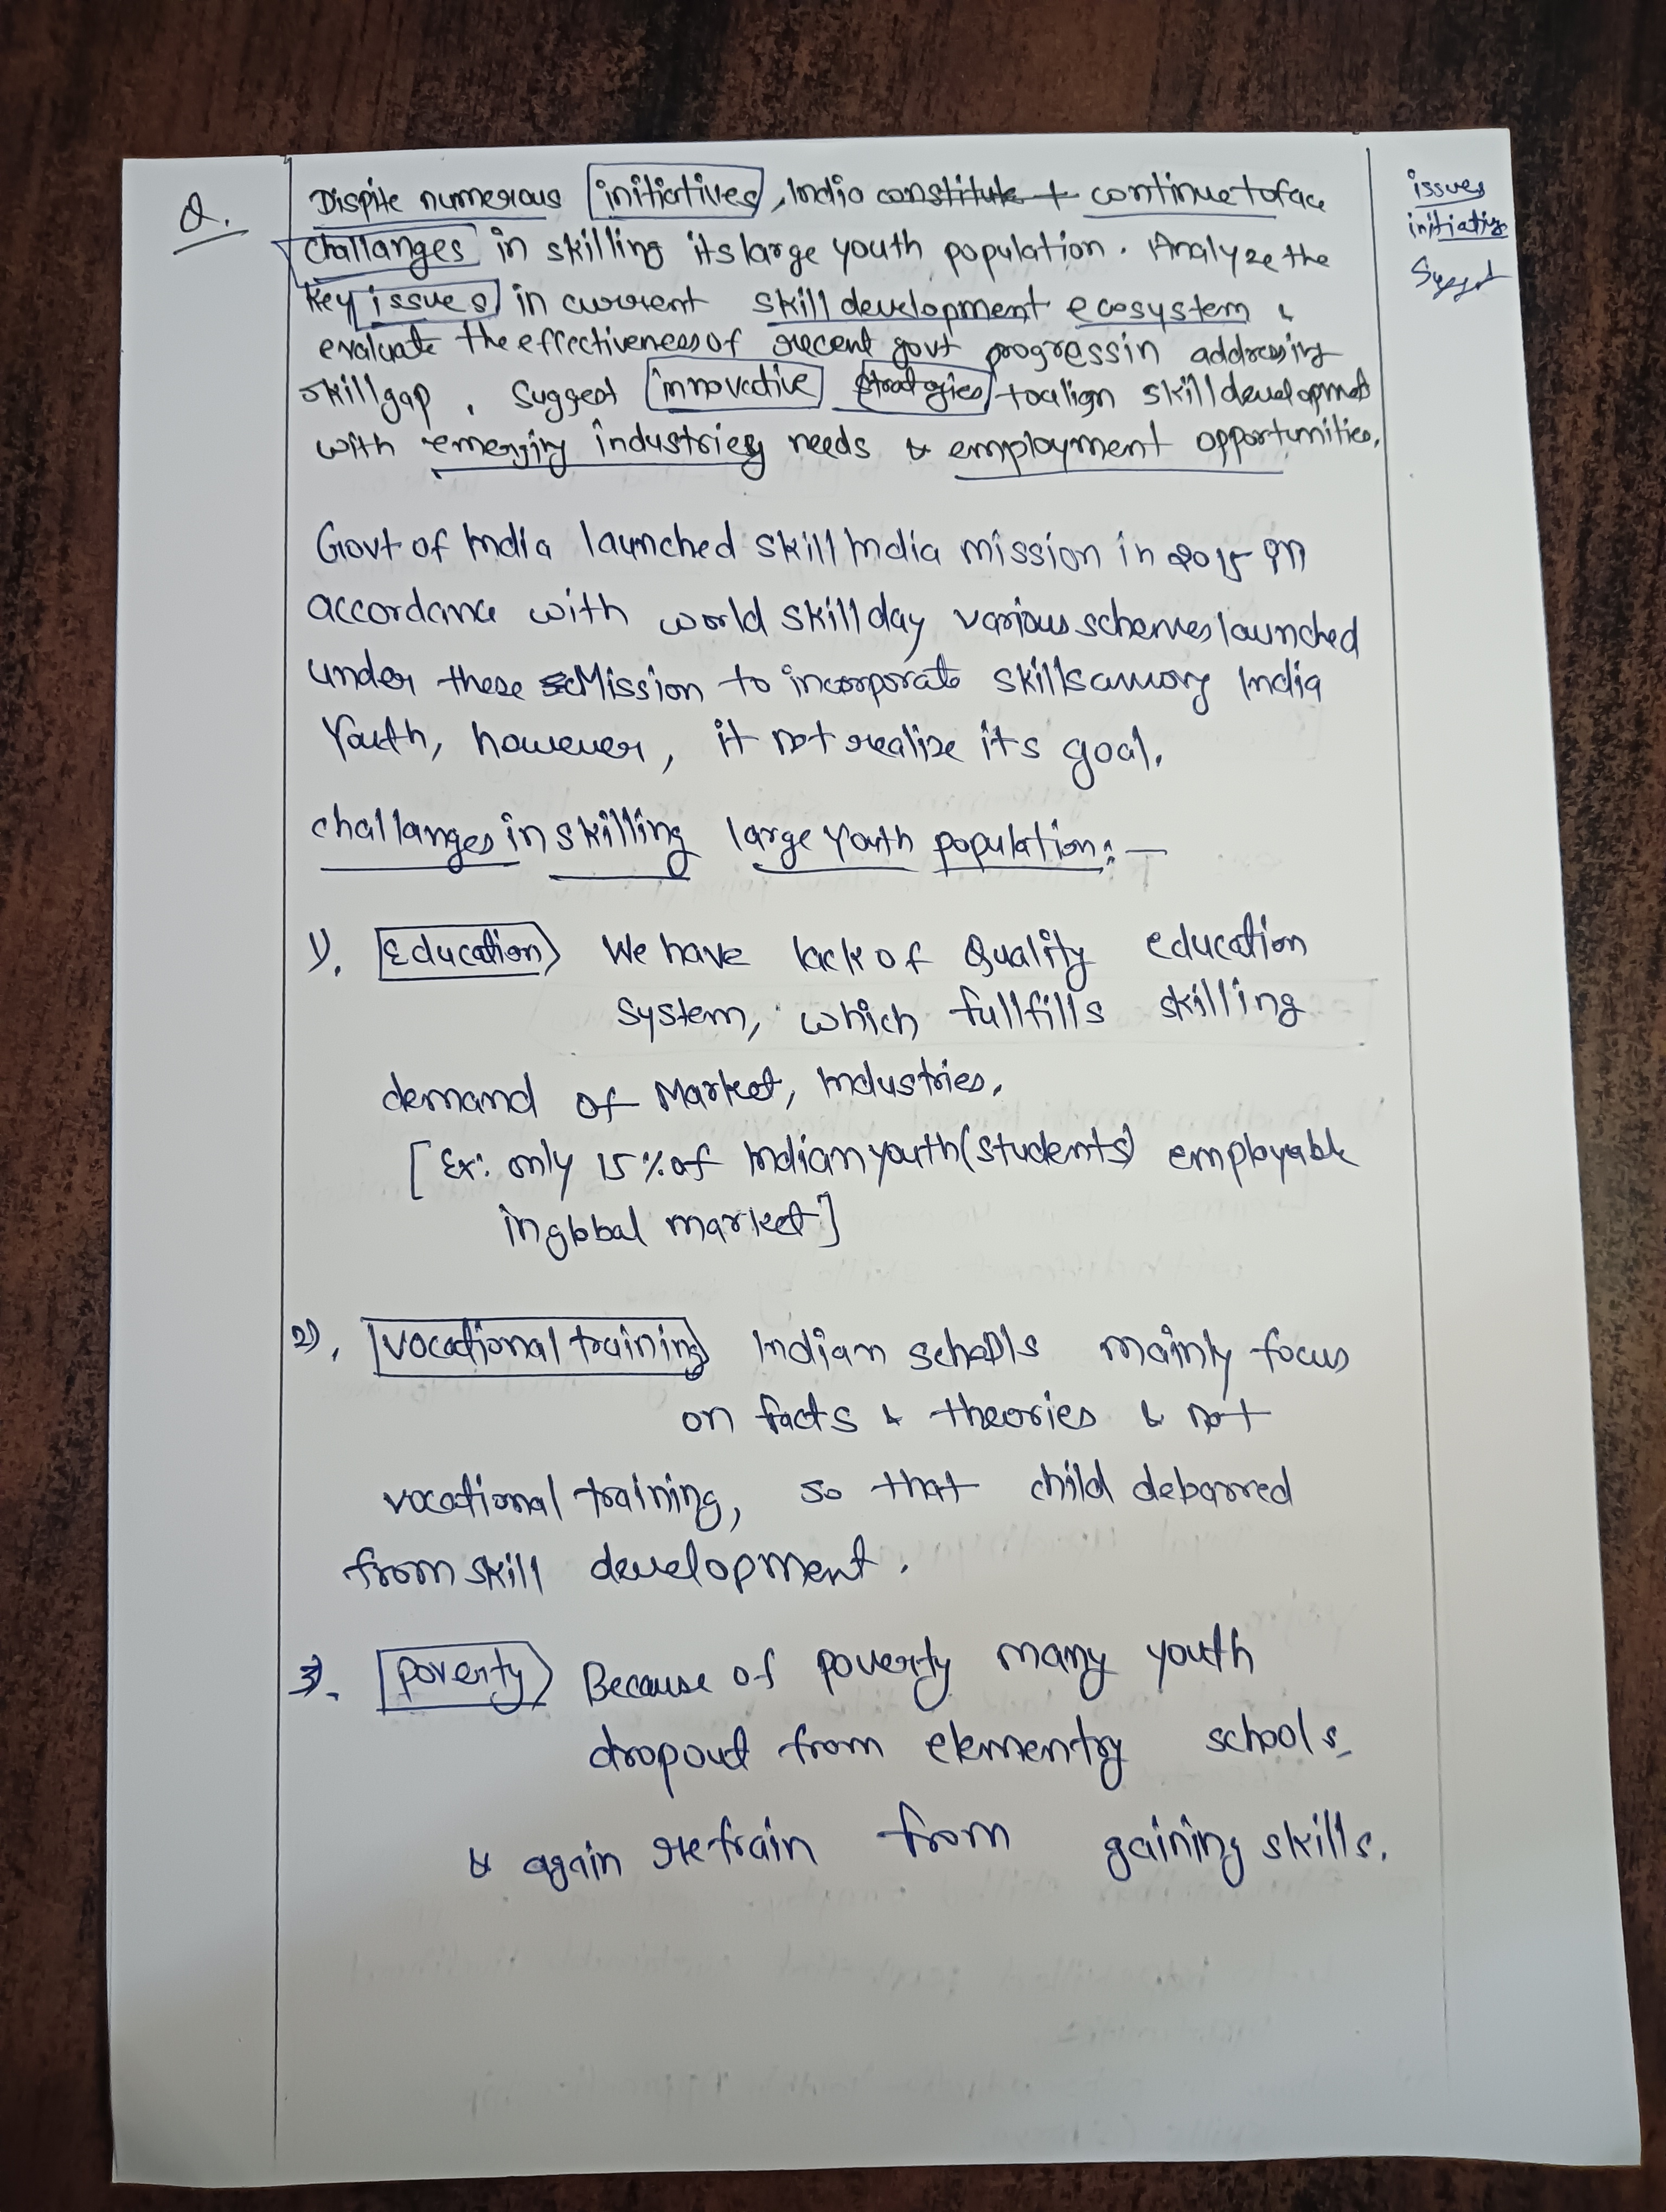 Q.
Dispite numerous initiatives, India constitute t continue to face
challanges in skilling its large youth population. Analyze the
key issues in current skill development ecosystem &
evaluate the effectiveness of recent govt progress in addressing
skill gap. Suggest innovative strategies to align skill development
with emerging industries needs & employment opportunities.
issues
initiative
Suggest
Govt of India launched skill India mission in 2015 in
accordance with world skill day various schemes launched
under these Mission to incorporate skills among India
Youth, however, it not realize its goal.
challanges in skilling large Youth population: —
1). Education We have lack of Quality education
system, which fullfills skilling
demand of Market, Industries.
[Ex: only 15% of Indian youth (students) employable
in global market]
2). Vocational training Indian schools mainly focus
on facts & theories & not
vocational training, so that child debarred
from skill development.
3). Poverty Because of poverty many youth
dropout from elementry schools
& again refrain from gaining skills.